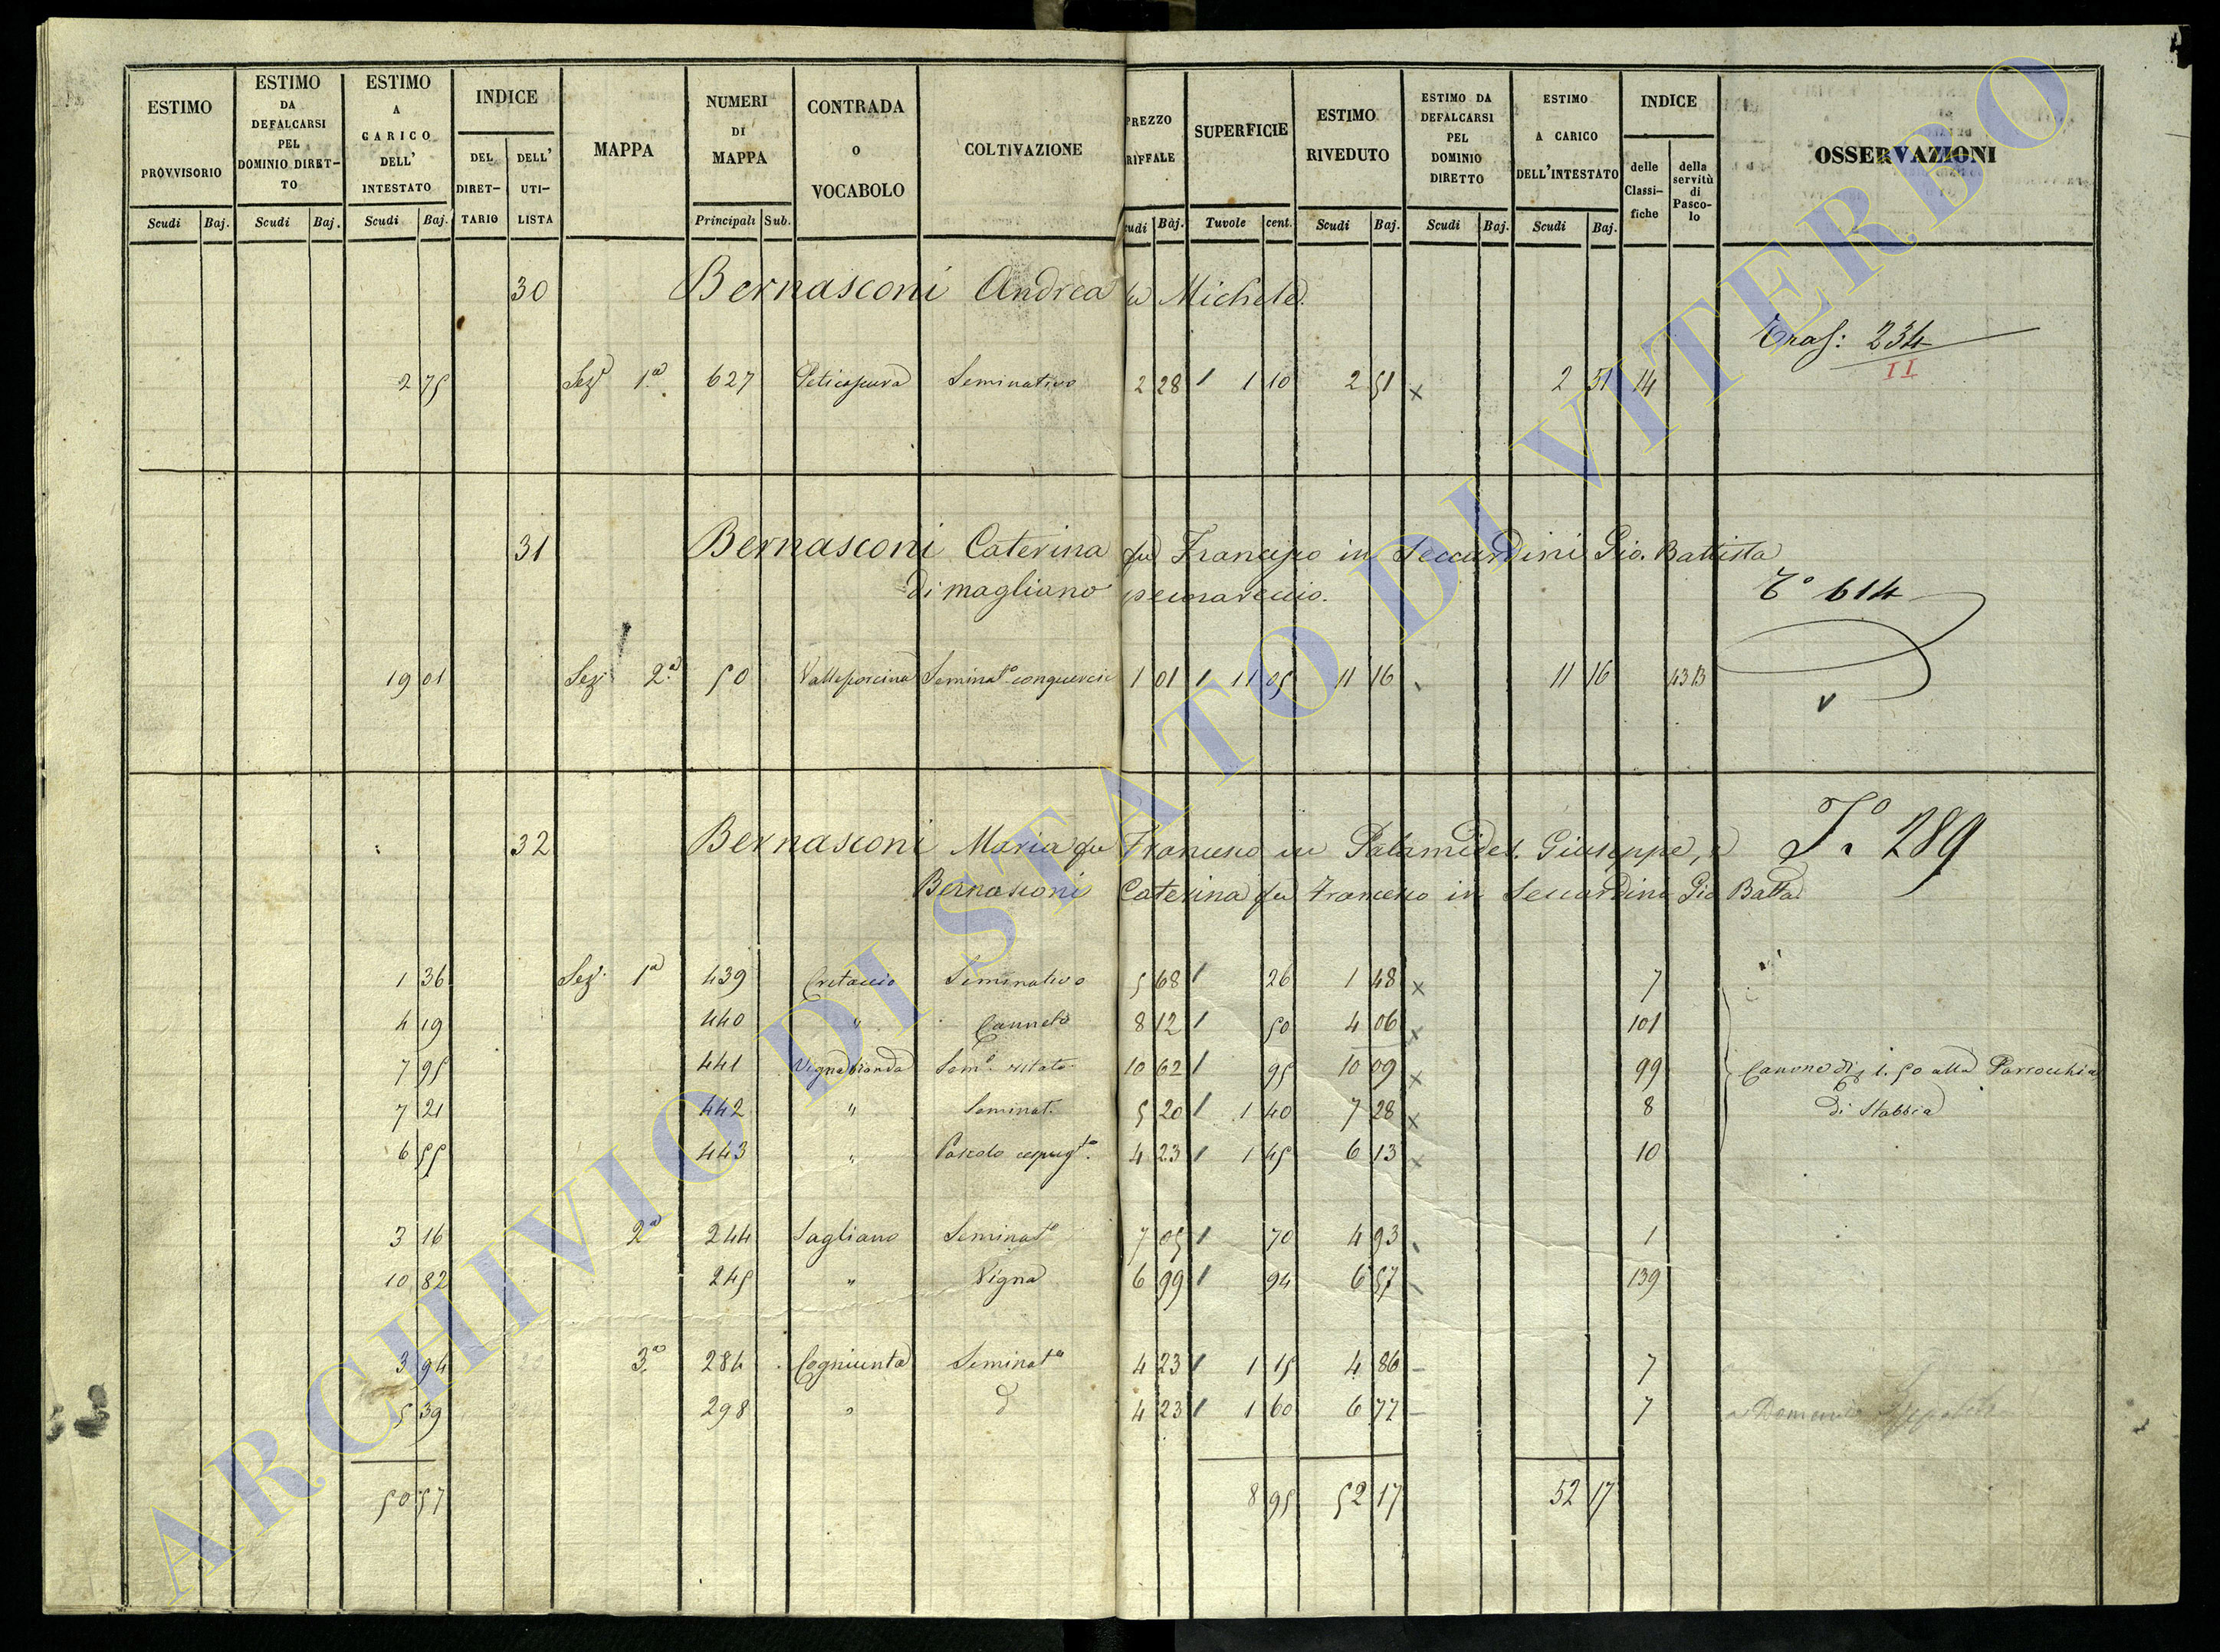 ESTIMO PROVVISORIO Scudi Baj.
ESTIMO DA DEFALCARSI PEL DOMINIO DIRET-TO Scudi Baj.
ESTIMO A CARICO DELL' INTESTATO Scudi Baj.
INDICE DEL DIRET-TARIO DELL' UTI-LISTA
MAPPA
NUMERI DI MAPPA Principali Sub.
CONTRADA o VOCABOLO
COLTIVAZIONE
PREZZO RIFFALE udi Baj.
SUPERFICIE Tavole cent.
ESTIMO RIVEDUTO Scudi Baj.
ESTIMO DA DEFALCARSI PEL DOMINIO DIRETTO Scudi Baj.
ESTIMO A CARICO DELL'INTESTATO Scudi Baj.
INDICE delle Classi-fiche della servitù di Pasco-lo
OSSERVAZIONI
30 Bernasconi Andrea fu Michele
Tras: 234
II
2 75 Sez 1ª 627 Seminativo 2 28 1 1 10 2 51 x 2 51 14
31 Bernasconi Caterina fu Francesco in Seccardini Gio. Battista
di magliano pecorareccio.
Tº 614
19 01 Sez 2ª 50 Valleporcina Seminatº con querce 1 01 1 11 05 11 16 11 16 43 B
V
32 Bernasconi Maria fu Francesco in Palamides Giuseppe, e
Tº 289
Bernasconi Caterina fu Francesco in Seccardini Gio Batta
1 36 Sez. 1ª 439 Cretaccio Seminativo 5 68 1 26 1 48 x 7
4 19 440 " Canneto 8 12 1 50 4 06 x 101
7 95 441 Vignabionda Semº vitato 10 62 1 95 10 09 x 99 Canone di 1.50 alla Parrocchia
7 21 442 " Seminat. 5 20 1 1 40 7 28 x 8 di Stabbia
6 55 443 " Pascolo cespugtº. 4 23 1 1 45 6 13 x 10
3 16 2ª 244 Sagliano Seminatº 7 05 1 70 4 93 1
10 82 245 " Vigna 6 99 1 94 6 57 139
3 94 3ª 284 Cogniunta Seminatº 4 23 1 1 15 4 86 – 7
5 39 298 " d 4 23 1 1 60 6 77 – 7
50 57 8 95 52 17 52 17
ARCHIVIO DI STATO DI VITERBO